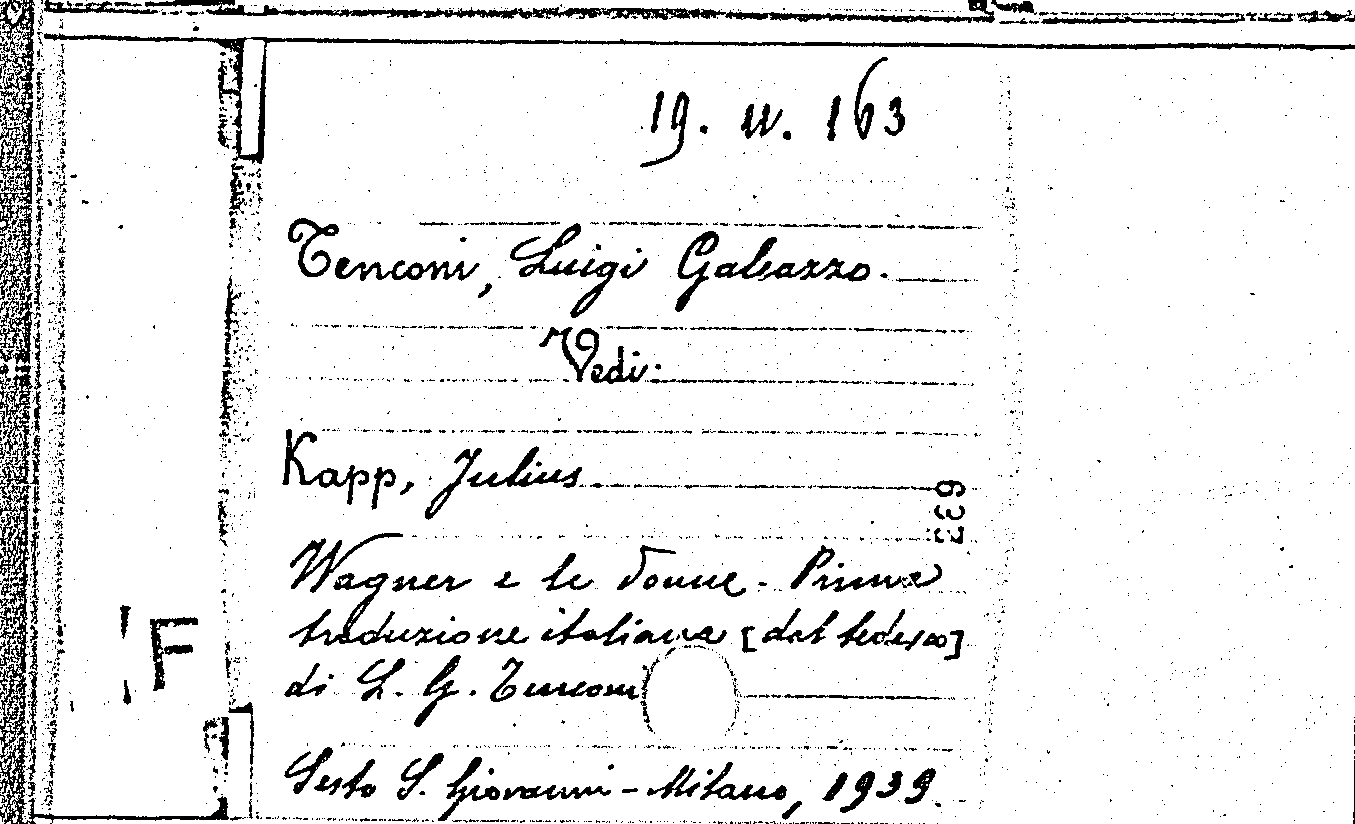 19. U. 163
Tenconi, Luigi Galeazzo.
Vedi:
Kapp, Julius.
633
Wagner e le donne. Prima
traduzione italiana [dal tedesco]
di L. G. Tenconi
F
Sesto S. Giovanni - Milano, 1939.